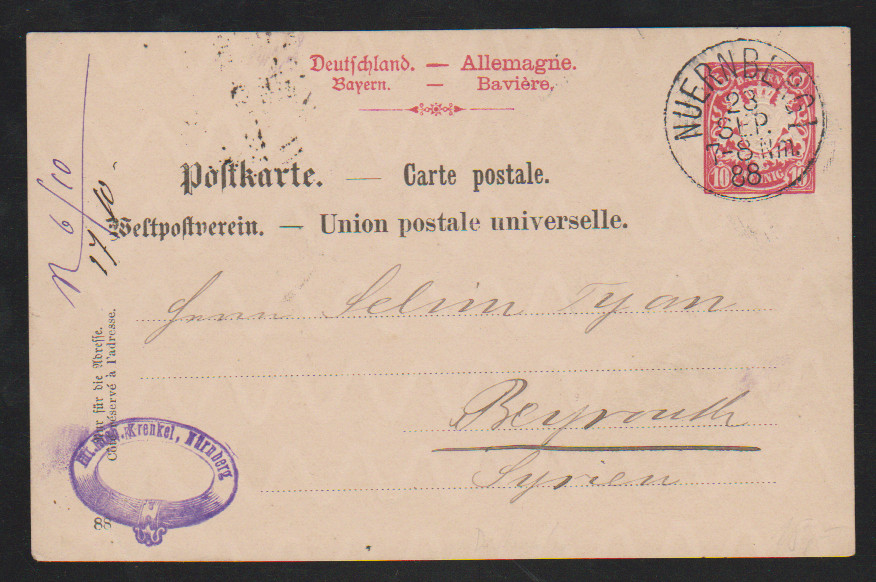 Deutschland. — Allemagne.
Bayern. — Bavière.
NUERNBERG 1
28
SEP.
7-8 Nm.
88
10 10
Postkarte. — Carte postale.
Weltpostverein. — Union postale universelle.
6/10
17/10
Herrn Selim Tyan
Beyrouth
Syrien
Nur für die Adresse.
Côté réservé à l'adresse.
Krenkel, Nürnberg
88